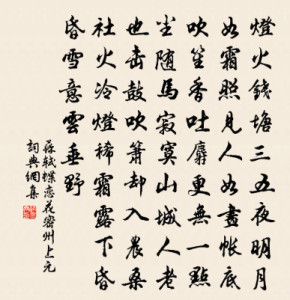 燈火錢塘三五夜明月
如霜照見人如畫帳底
吹笙香吐麝更無一點
尘随馬寂寞山城人老
也击鼓吹簫却入農桑
社火冷燈稀霜露下昏
昏雪意雲垂野
蘇軾蝶戀花密州上元
詞典網集